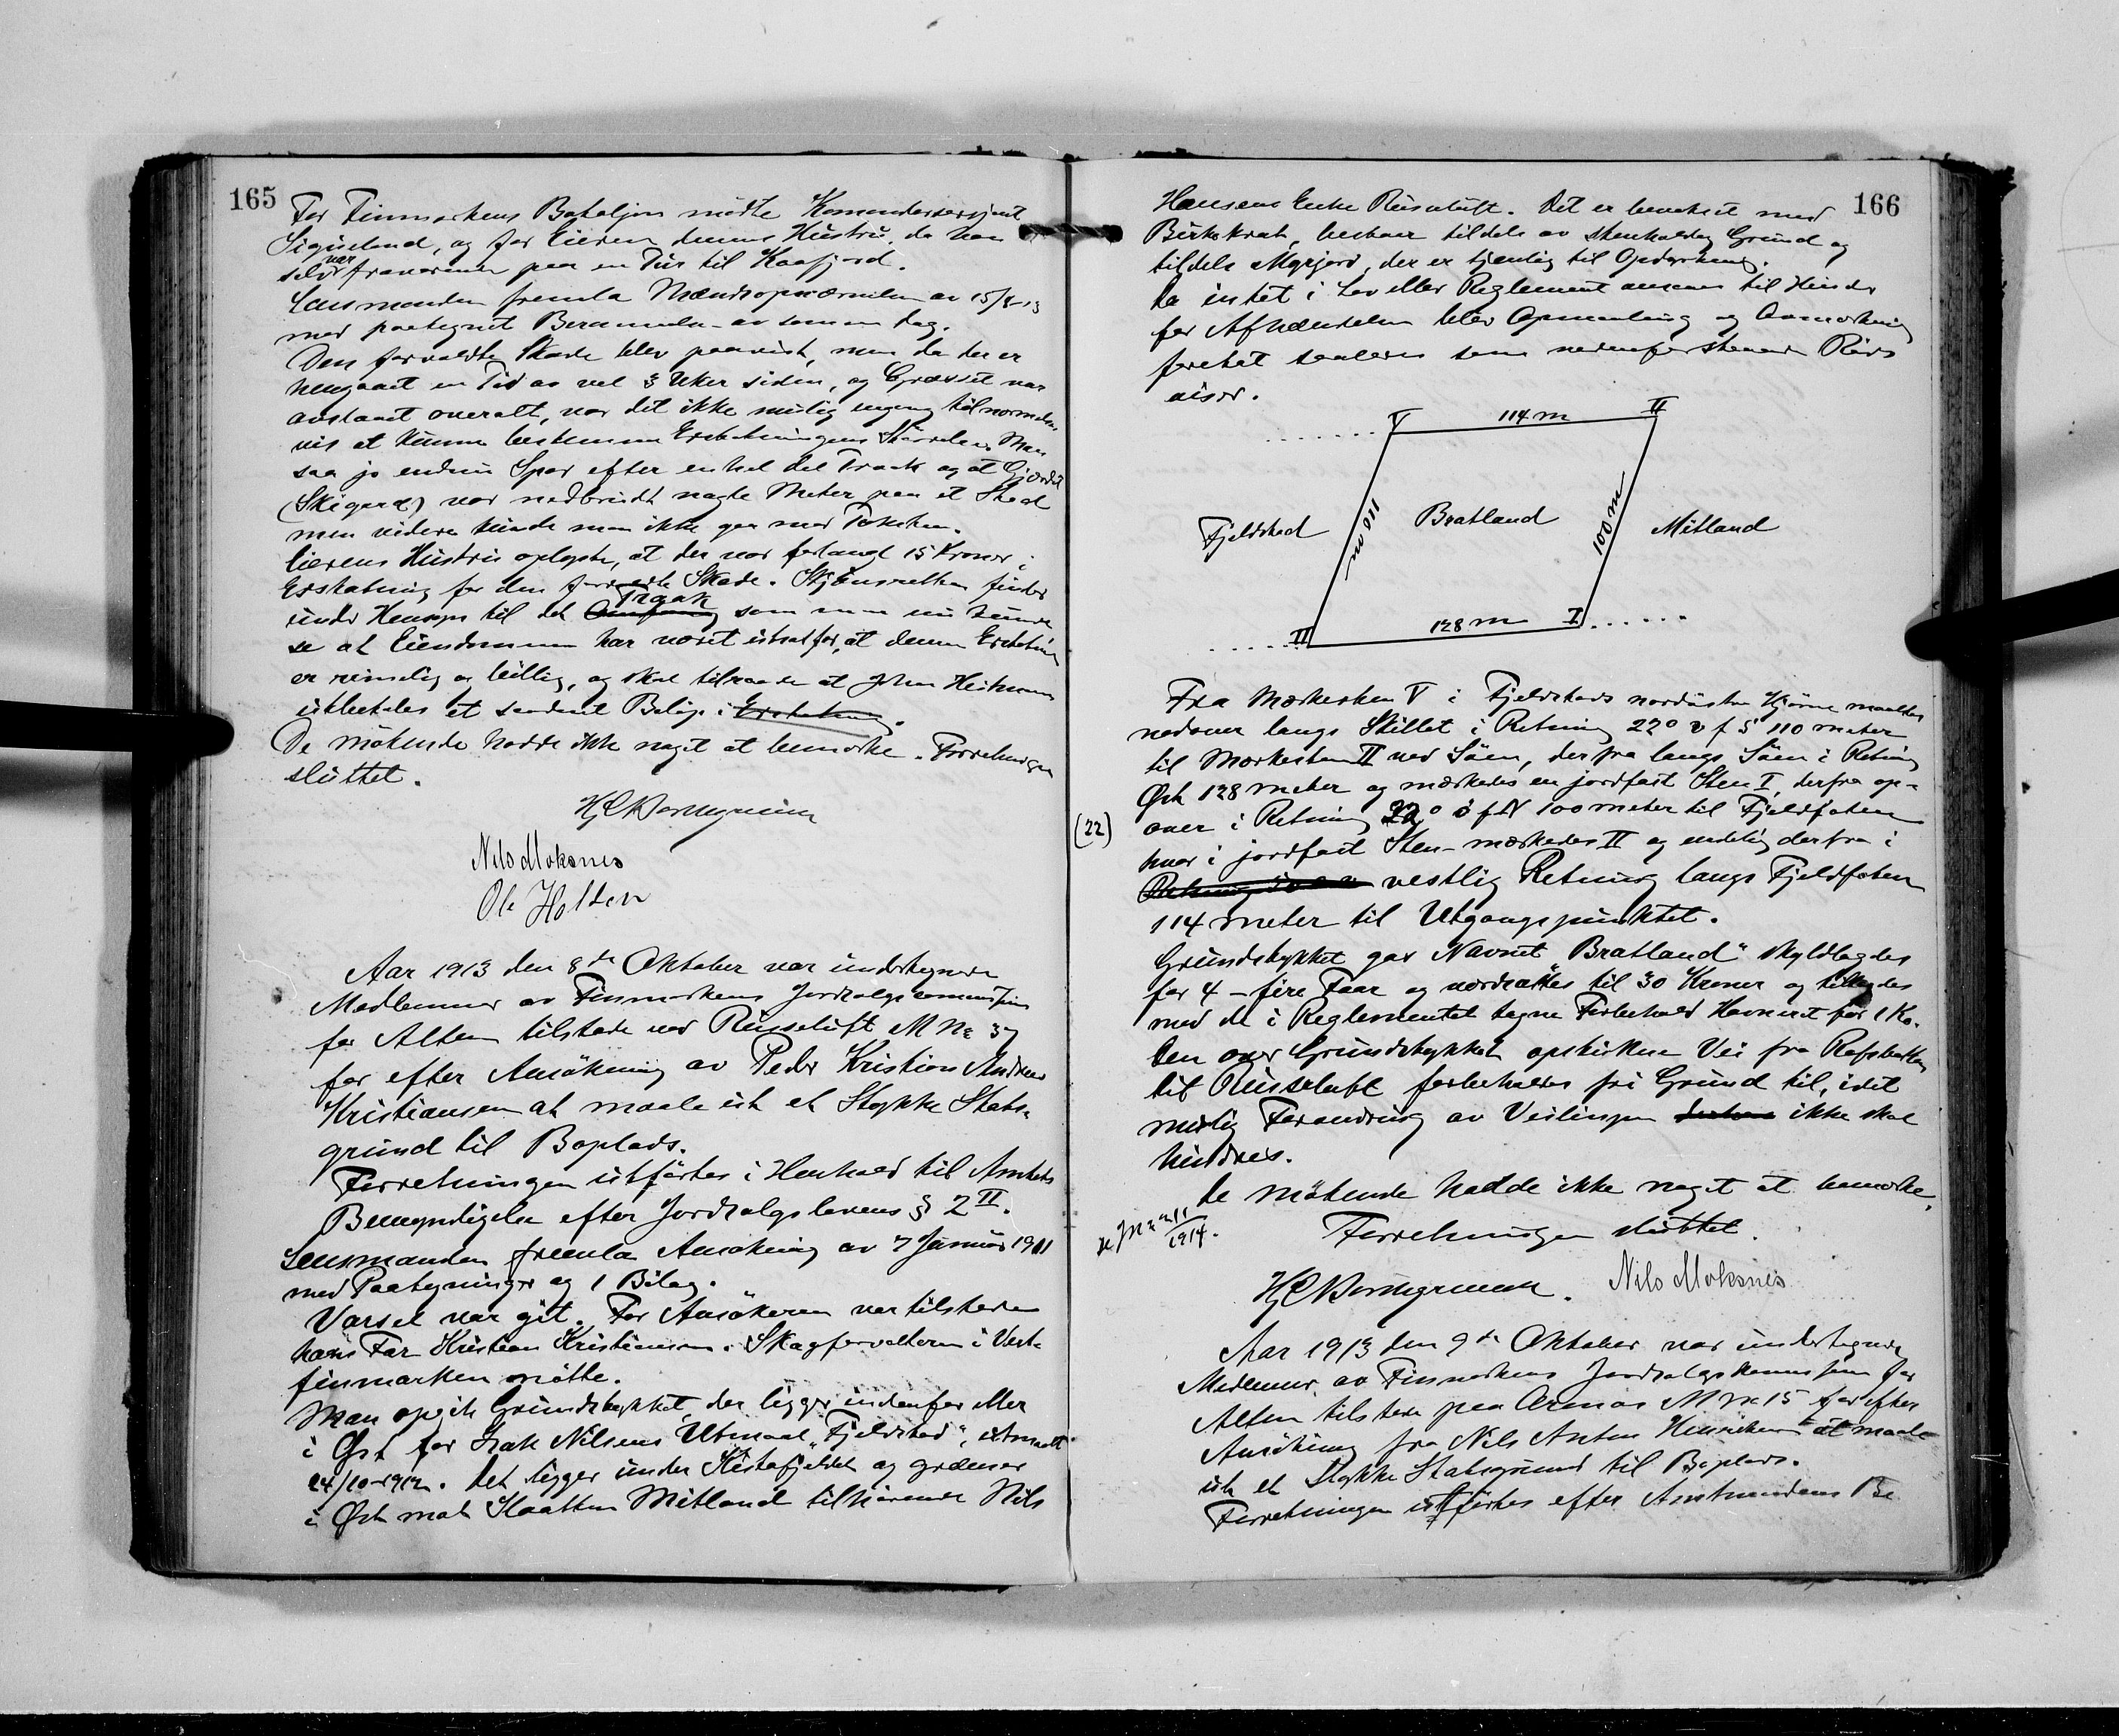 165
For Finmarkens Bataljon mødte Komandersersjant
Sigurland, og for Eieren dennes Hustru, da han
selv var fraværende paa en Tur til Kaafjord.
Lensmanden fremla Mændsopnævnelse av 15/8-13
med paategnet Berammelse av samme Dag.
Den forvoldte Skade blev paavist, men da der er
hengaaet en Tid av vel 3 Uker siden, og Græsset var
avslaaet overalt, var det ikke mulig engang tilnærmelses
vis at kunne bestemme Erstatningens Størrelse. Man
saa jo endnu Spor efter en hel del Traak og at Gjærdet
(Skigard) var nedbrudt nogle Meter paa et Sted
men videre kunde man ikke gaa med Taksten.
Eierens Hustru oplyste, at der var forlangt 15 Kroner i
Erstatning for den forvoldte Skade. Skjønsretten finder
under Hensyn til det Traak som man nu kunde
se at Eiendommen har været utsat for, at denne Erstatning
er rimelig og billig, og skal tilraade at John Heitmann
utbetales et saadant Beløp i Erstatning.
De møtende hadde ikke noget at bemærke. Forretningen
sluttet.
Nils Moksnes
Ole Holten
Aar 1913 den 8de Oktober var undertegnede
Medlemmer av Finmarkens Jordsalgscommission
for Alten tilstede ved Russeluft M No 37
for efter Ansøkning av Peder Kristian Andreas
Kristiansen at maale ut et Stykke Stats-
grund til Boplads.
Forretningen utførtes i Henhold til Amtets
Bemyndigelse efter Jordsalgslovens § 2 II.
Lensmanden fremla Ansøkning av 7 Januar 1911
med Paategninger og 1 Bilag.
Varsel var git. For Ansøkeren var tilstede
hans Far Kristian Kristiansen. Skogforvalteren i Vest-
finmarken møtte.
Man opgik Grundstykket, der ligger indenfor eller
i Øst for Isak Nilsens Utmaal "Fjeldstad", utmaalt
24/10-1912. Det ligger under Kistafjeldet og grænser
i Øst mot Slaatten Mitland tilhørende Nils
166
Hansens Enke Russeluft. Det er bevokset med
Birkekrat, bestaar tildels av stenholdig Grund og
tildels Myrjord, der er tjenlig til Opdyrkning.
Da intet i Lov eller Reglement ansaaes til Hinder
for Afhændelsen blev Opmaaling og Avmerkning
foretat saaledes som nedenforstaaende Rids
viser.
V 114 m II
Fjeldstad 110 m Bratland 100 m Mitland
II 128 m I
Fra Merkesten V i Fjeldstads nordøstre Hjørne maaltes
nedover langs Skillet i Retning 22° v f S 110 meter
til Merkesten II ved Søen, derfra langs Søen i Retning
Øst 128 meter og mærkedes en jordfast Sten I, derfra op-
(22) over i Retning 22° ø f N 100 meter til Fjeldfoten
hvor i jordfast Sten mærkedes II og endelig derfra i
vestlig Retning langs Fjeldfoten
114 meter til Utgangspunktet.
Grundstykket gav Navnet "Bratland" skyldlagdes
for 4 – fire Øre og værdsattes til 30 Kroner og tillagdes
med de i Reglementet tagne Forbehold Havneret for 1 Ko.
Den over Grundstykket opstukne Vei fra Rafsbotten
til Russeluft forbeholdes fri Grund til, idet
mulig Forandring av Veilinjen ikke skal
hindres.
De møtende hadde ikke noget at bemærke.
Forretningen sluttet.
Nils Moksnes
Aar 1913 den 9de Oktober var undertegnede
Medlemmer av Finmarkens Jordsalgskommission for
Alten tilstede paa Aronæs M No 15 for efter
Ansøkning fra Nils Anton Henriksen at maale
ut et Stykke Statsgrund til Boplads.
Forretningen utførtes efter Amtmandens Be